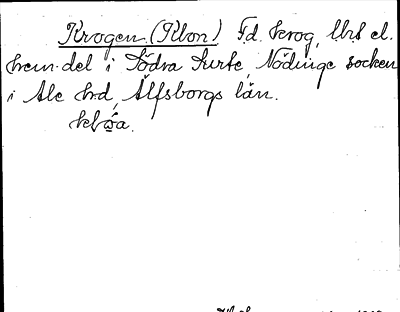 Krogen (Klon) F.d. krog, lht el.
hem.del i Södra Surte, Nödinge socken
i Ale hd, Älfsborgs län.